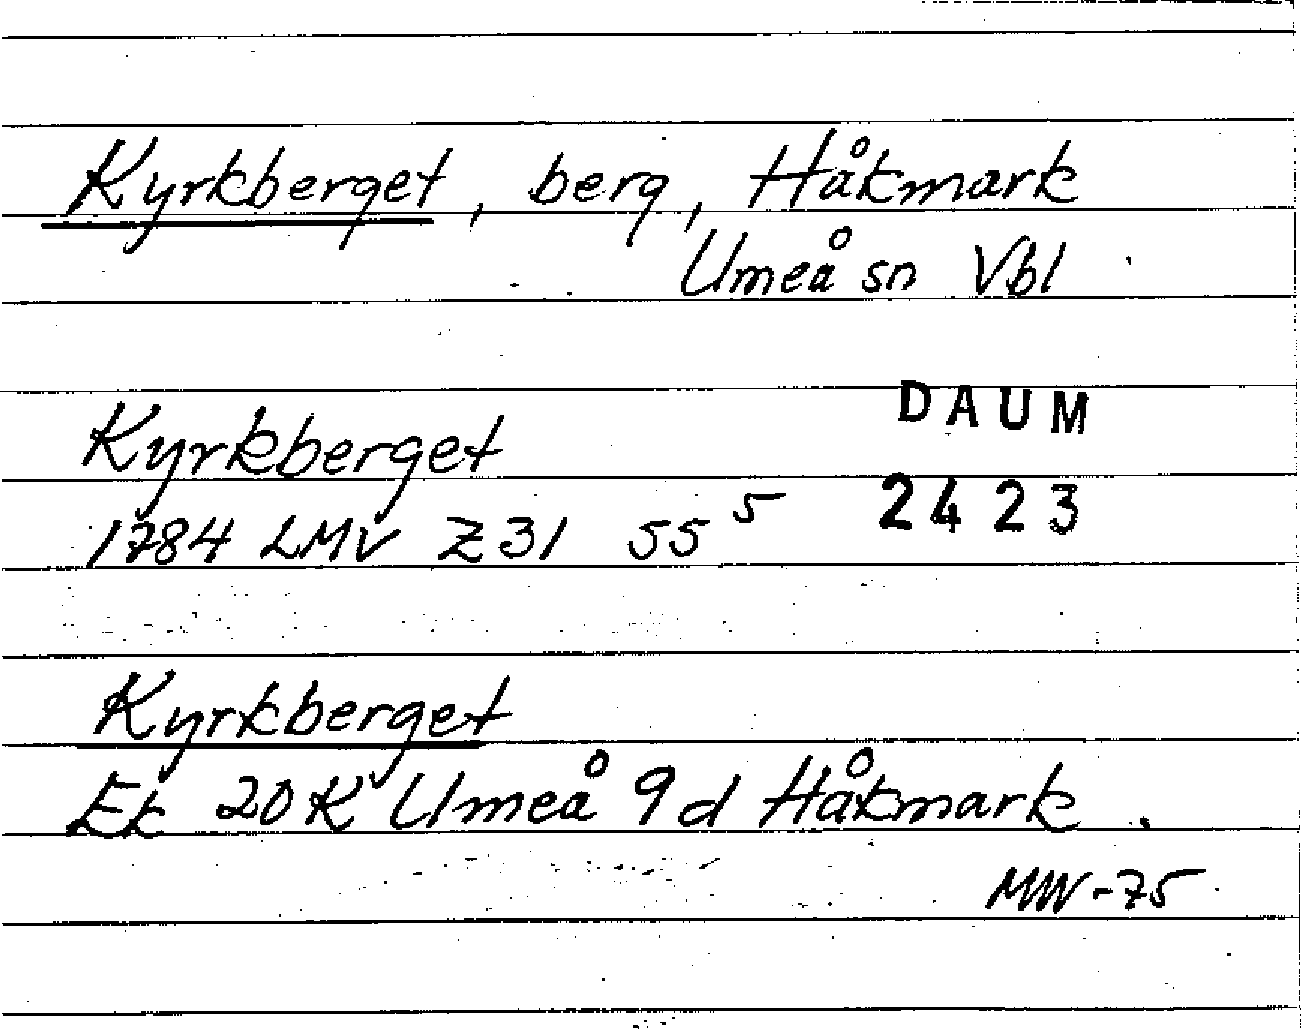 Kyrkberget, berg, Håkmark
Umeå sn Vbl
DAUM
2423
Kyrkberget
1784 LMV Z31 55⁵
Kyrkberget
Ek 20K Umeå 9d Håkmark.
MW-75